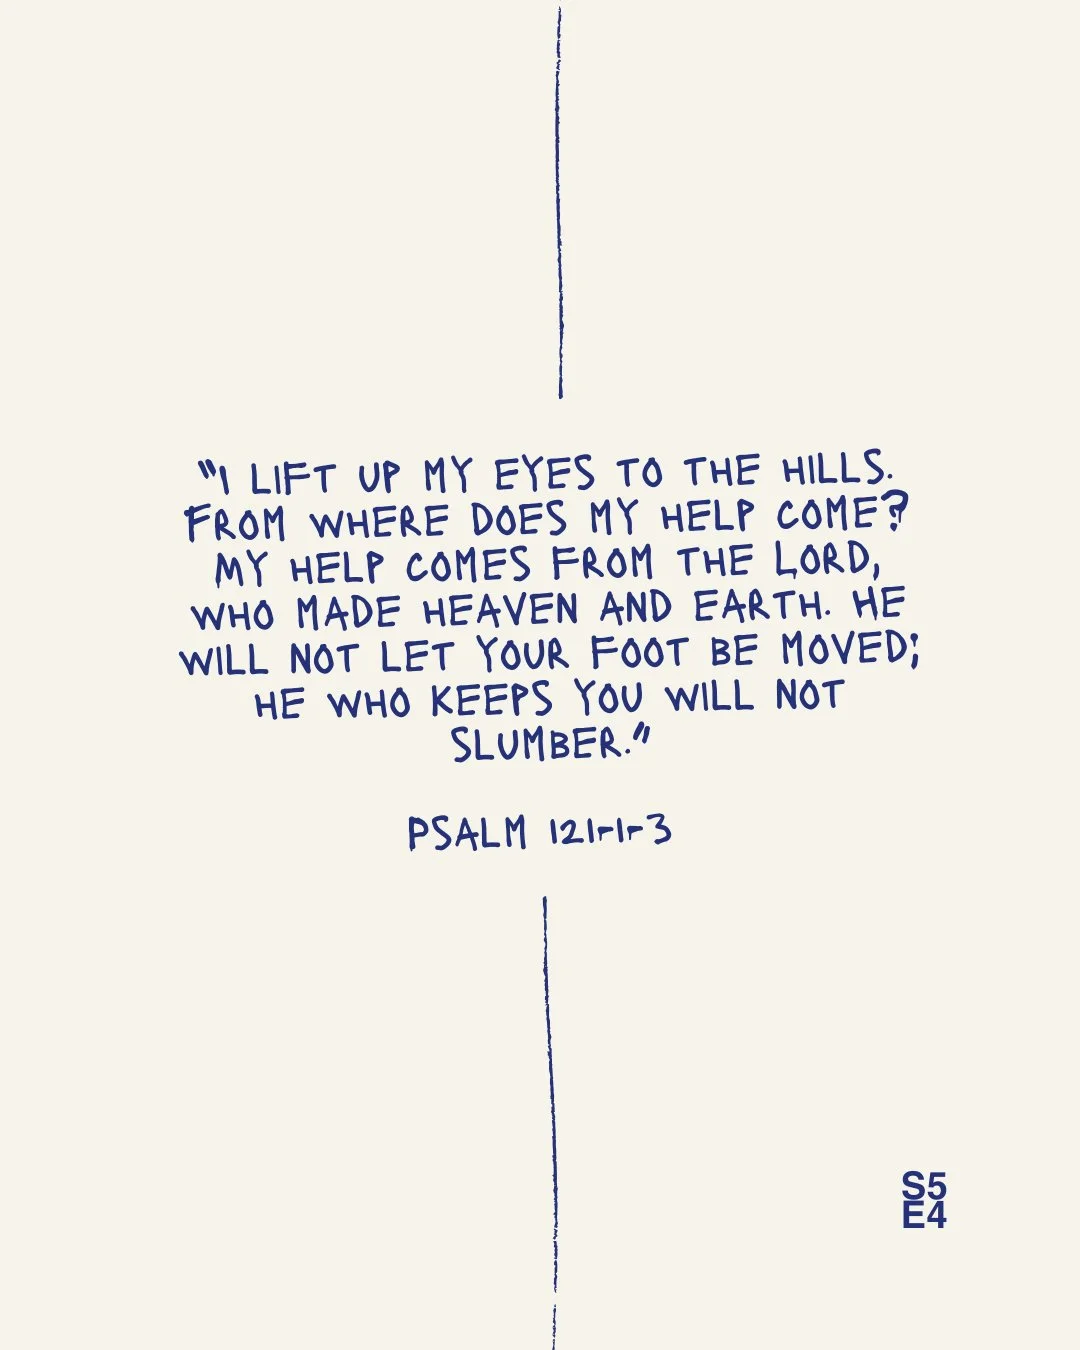 "I LIFT UP MY EYES TO THE HILLS.
FROM WHERE DOES MY HELP COME?
MY HELP COMES FROM THE LORD,
WHO MADE HEAVEN AND EARTH. HE
WILL NOT LET YOUR FOOT BE MOVED;
HE WHO KEEPS YOU WILL NOT
SLUMBER."
PSALM 121-1-3
S5
E4